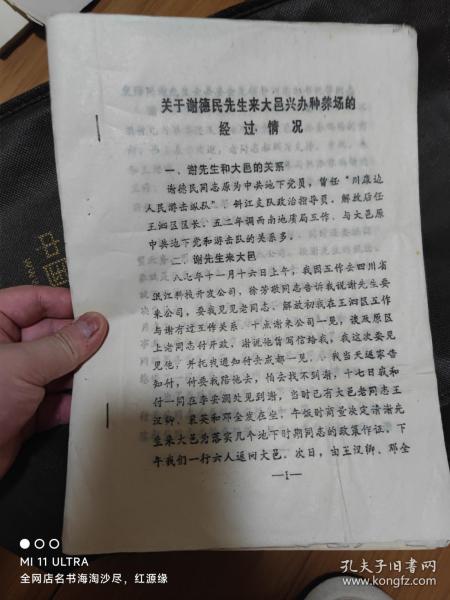 关于谢德民先生来大邑兴办种养场的
经过情况
一、谢先生和大邑的关系
谢德民同志原为中共地下党员，曾任“川康边
人民游击纵队”斜江支队政治指导员，解放后任
王泗区区长、五二年调西南地质局工作，与大邑原
中共地下党和游击队的关系多。
二、谢先生来大邑
八七年十一月十六日上午，我因工作去四川省
岷江科技开发公司，徐芳敏同志告诉我说谢先生要
来公司，要我见见老同志、解放初我在王泗区工作
与谢有过工作关系，十点谢来公司一见，谈及原区
上老同志付开政、谢说他曾写信给我，我这次要见
见他，并托我通知付去成都一见，我当天返家告
知付，付要我陪他去，怕去找不到谢，十七日我和
付一同在李安澜处见到谢，当时已有大邑老同志王
汉卿、裴英和邓全发在坐，午饭时商量决定请谢先
生来大邑为落实几个地下时期同志的政策作证，下
午我们一行六人返回大邑。次日，由王汉卿、邓全
—1—
MI 11 ULTRA
全网店名书海淘沙尽，红源缘
孔夫子旧书网
www.kongfz.com